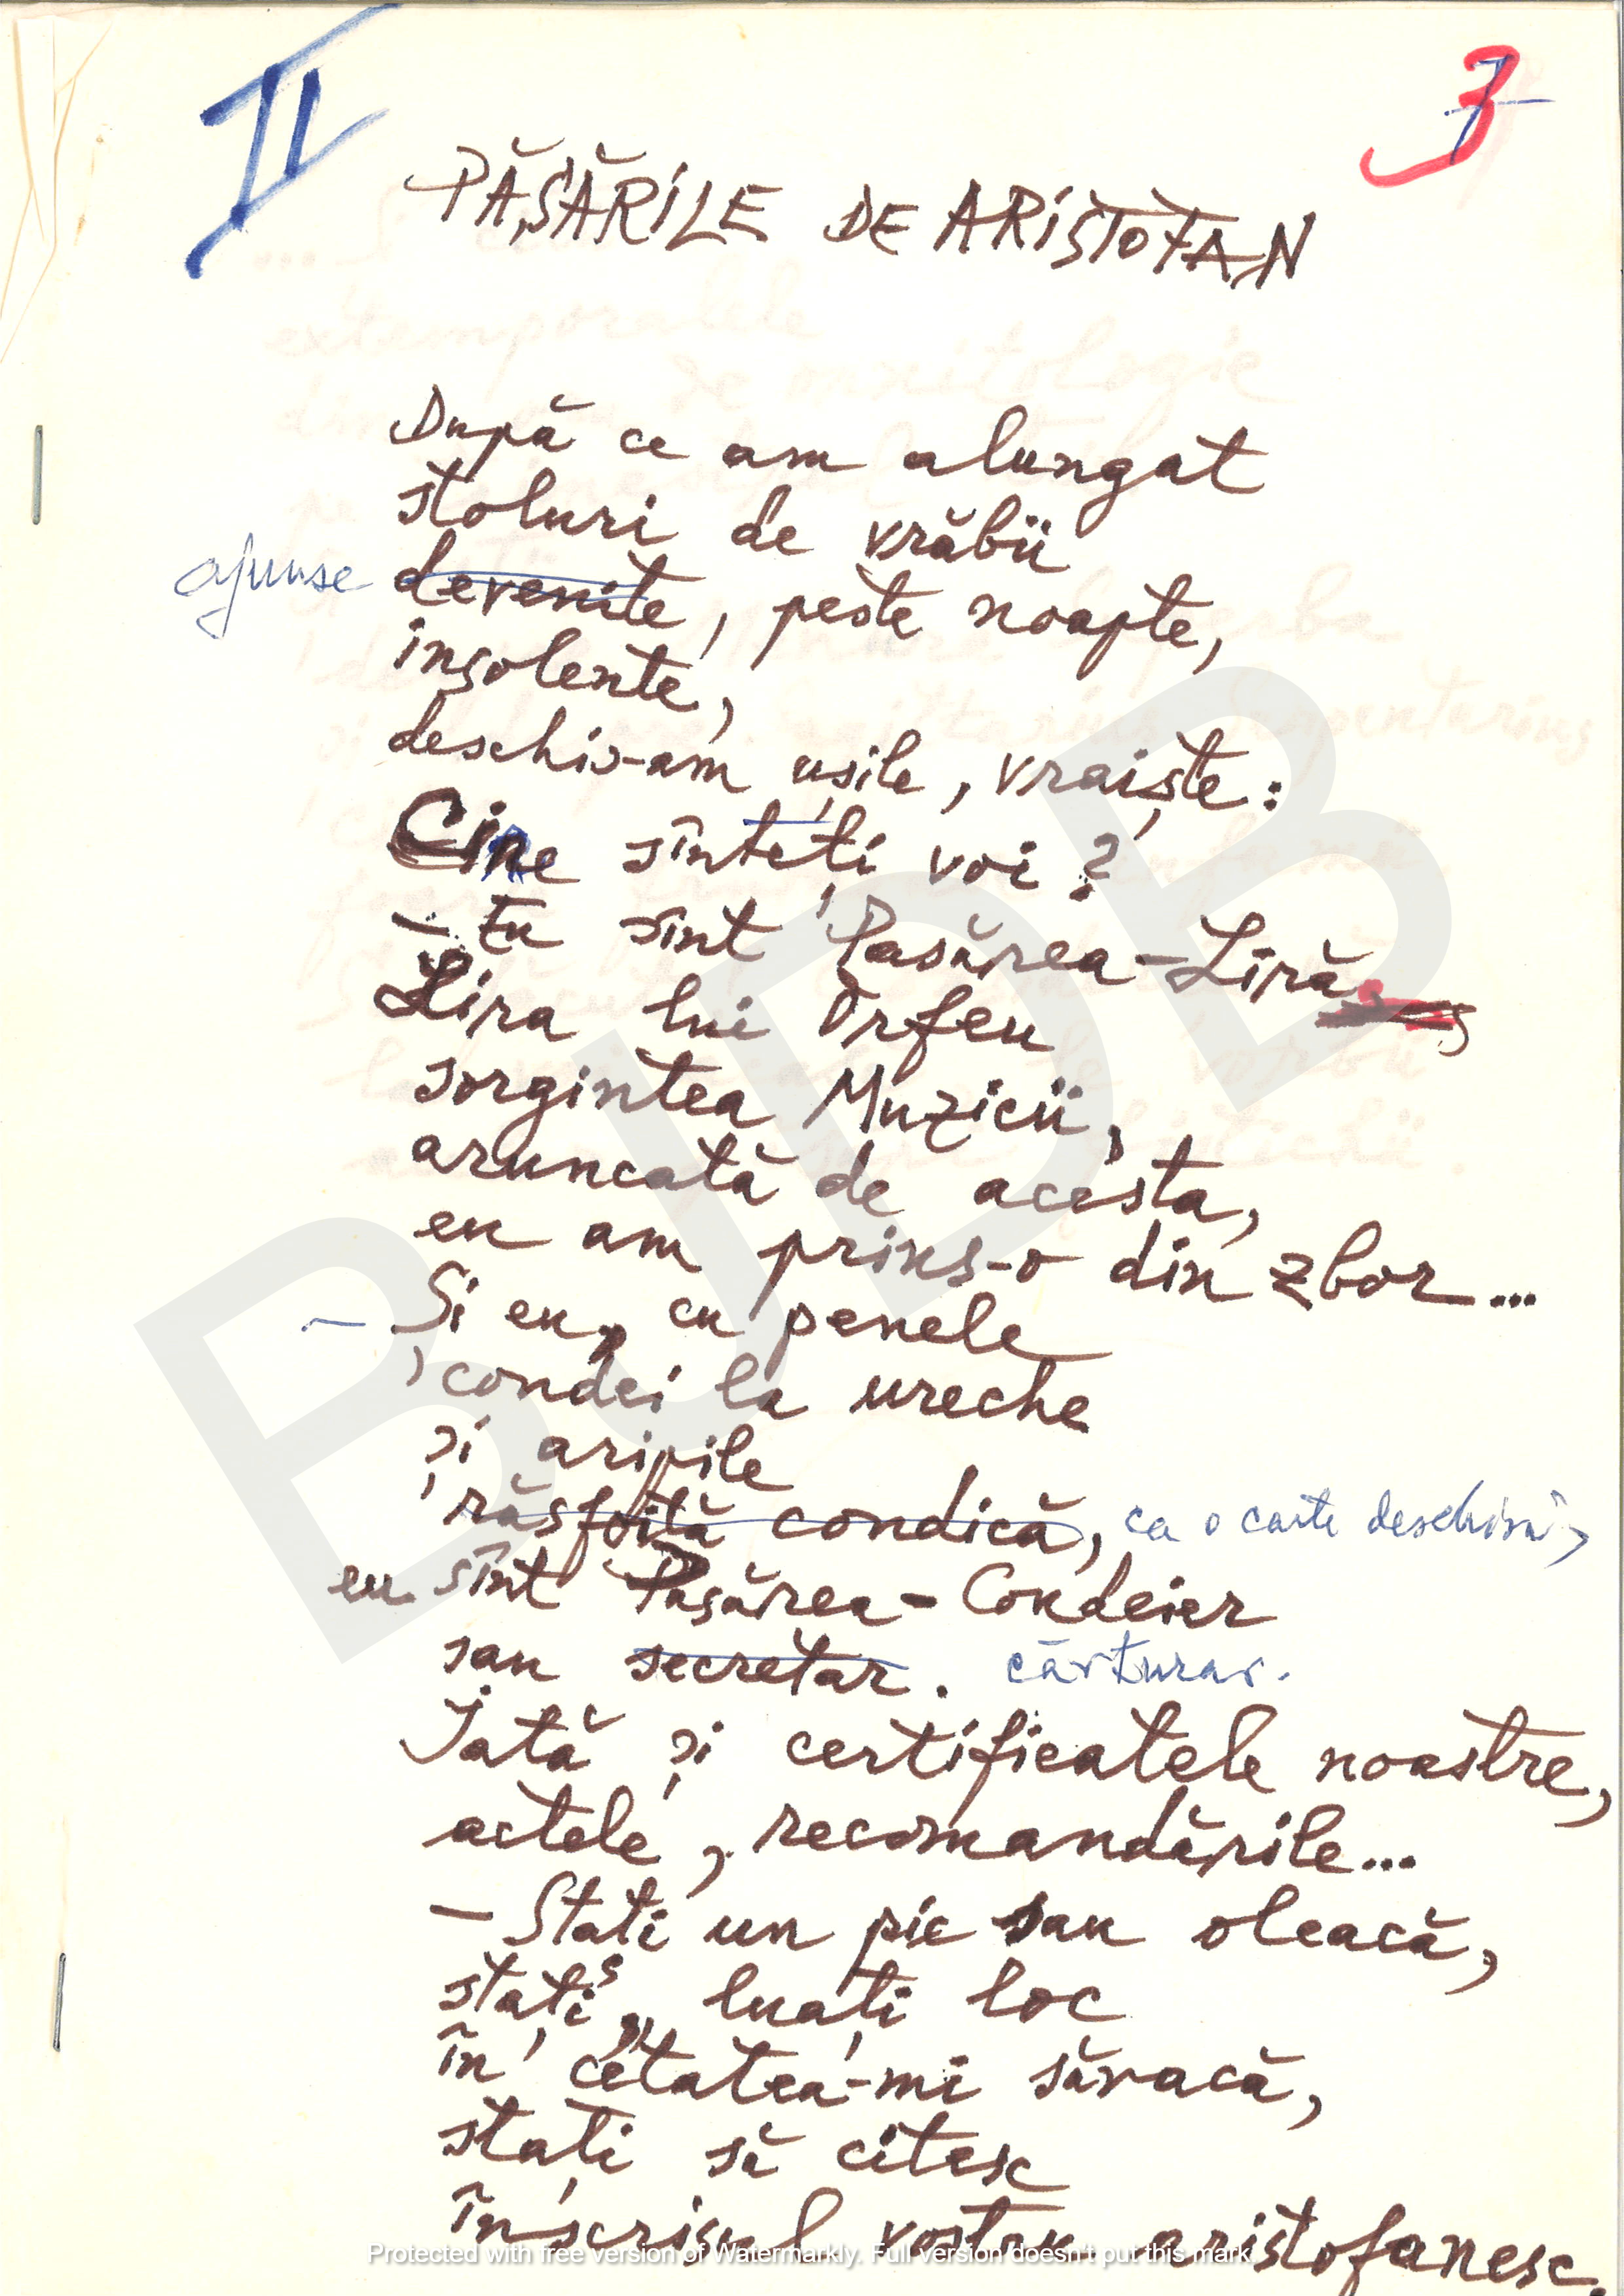 II
3
PĂSĂRILE DE ARISTOFAN
După ce am alungat
stoluri de vrăbii
ajunse devenite, peste noapte,
insolente,
deschis-am ușile, vraiște:
Cine sînteți voi?
– Eu sînt Pasărea-Liră,
Lira lui Orfeu
sorgintea Muzicii,
aruncată de acesta,
eu am prins-o din zbor...
– Și eu, cu penele
condei la ureche
și aripile
răsfoită condică, ca o carte deschisă,
eu sînt Pasărea-Condeier
sau secretar. cărturar.
Iată și certificatele noastre,
actele, recomandările...
– Stați un pic sau oleacă,
stați, luați loc
în cetatea-mi săracă,
stați să citesc
înscrisul vostru aristofanesc.
BJDB
Protected with free version of Watermarkly. Full version doesn't put this mark.